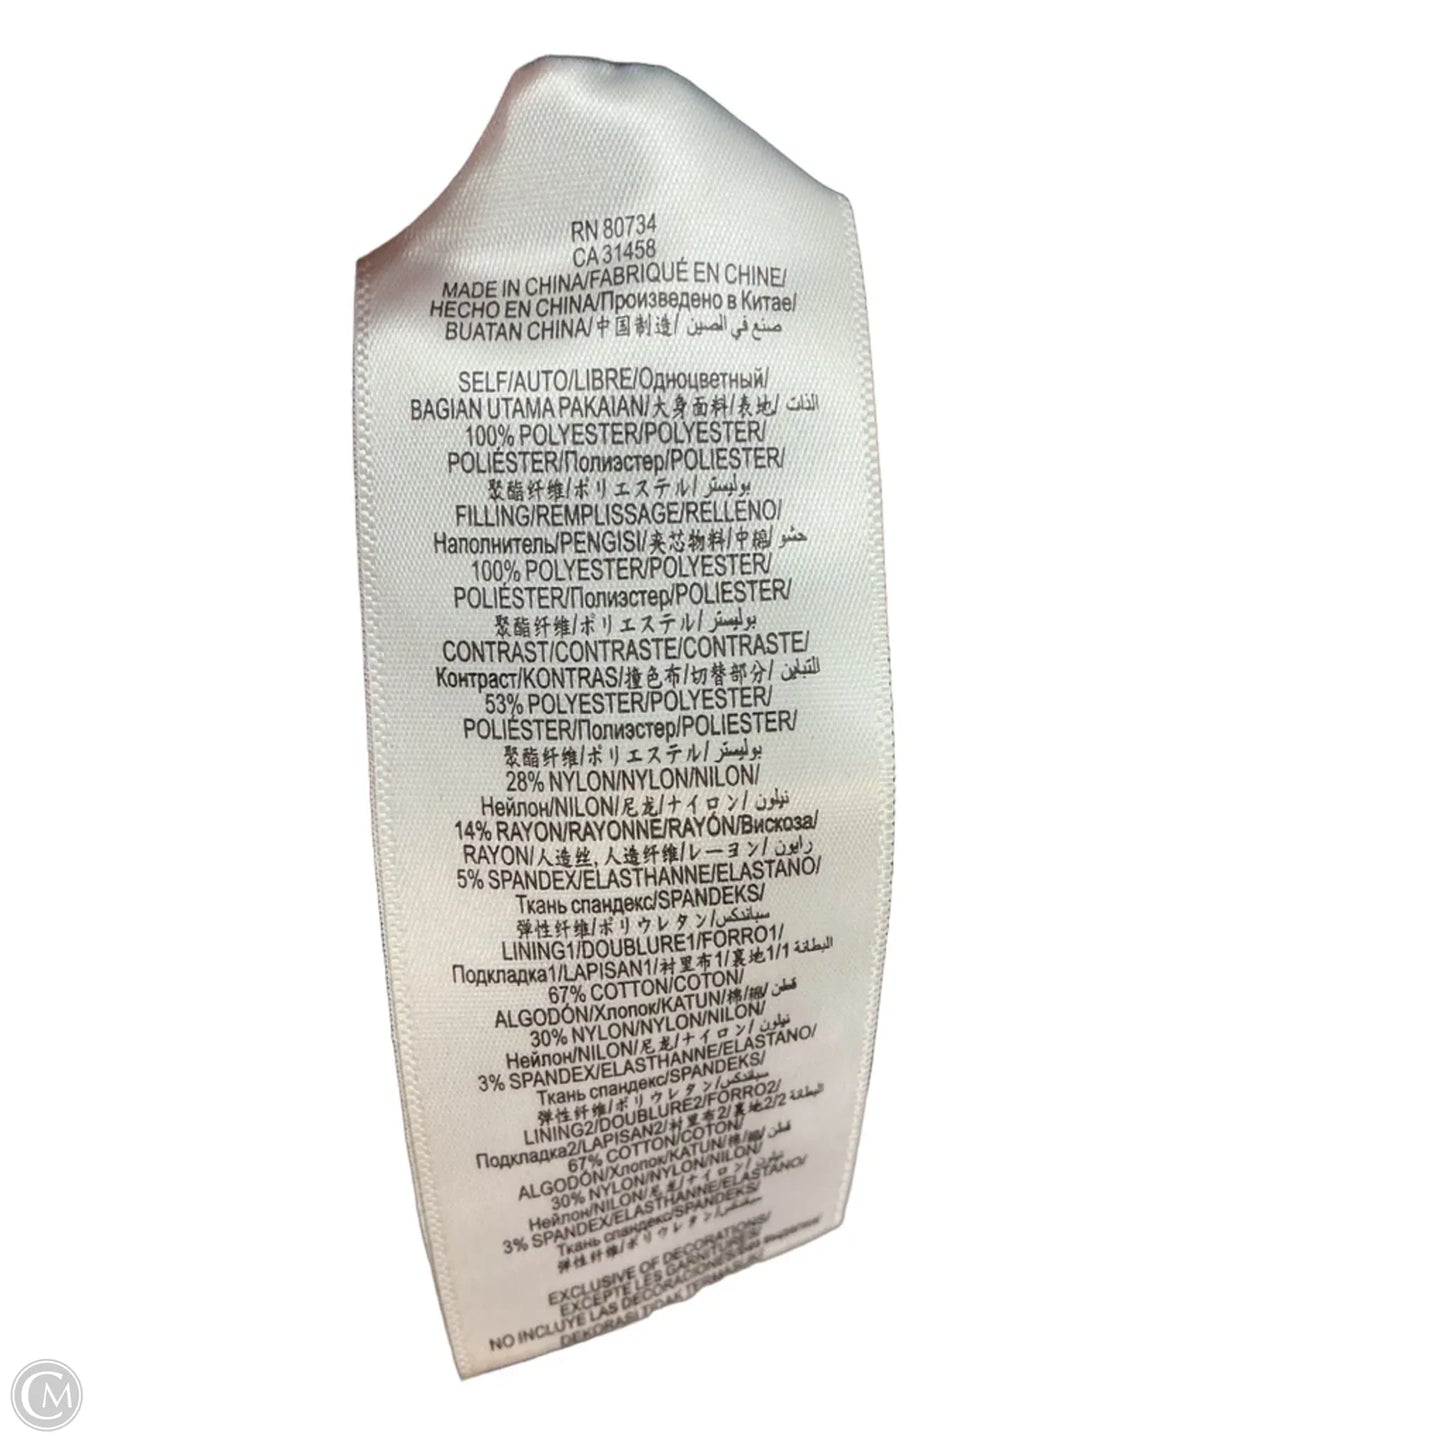 RN 80734
CA 31458
MADE IN CHINA/FABRIQUÉ EN CHINE/
HECHO EN CHINA/Произведено в Китае/
BUATAN CHINA/中国制造/ صنع في الصين
SELF/AUTO/LIBRE/Одноцветный/
BAGIAN UTAMA PAKAIAN/大身面料/表地/ الذات
100% POLYESTER/POLYESTER/
POLIÉSTER/Полиэстер/POLIESTER/
聚酯纤维/ポリエステル/ بوليستر
FILLING/REMPLISSAGE/RELLENO/
Наполнитель/PENGISI/夹芯物料/中綿/ حشو
100% POLYESTER/POLYESTER/
POLIÉSTER/Полиэстер/POLIESTER/
聚酯纤维/ポリエステル/ بوليستر
CONTRAST/CONTRASTE/CONTRASTE/
Контраст/KONTRAS/撞色布/切替部分/ التباين
53% POLYESTER/POLYESTER/
POLIÉSTER/Полиэстер/POLIESTER/
聚酯纤维/ポリエステル/ بوليستر
28% NYLON/NYLON/NILON/
Нейлон/NILON/尼龙/ナイロン/ نيلون
14% RAYON/RAYONNE/RAYÓN/Вискоза/
RAYON/人造丝, 人造纤维/レーヨン/ رايون
5% SPANDEX/ELASTHANNE/ELASTANO/
Ткань спандекс/SPANDEKS/
弹性纤维/ポリウレタン/ سباندكس
LINING1/DOUBLURE1/FORRO1/
Подкладка1/LAPISAN1/衬里布1/裏地1/ البطانة 1
67% COTTON/COTON/
ALGODÓN/Хлопок/KATUN/棉/綿/ قطن
30% NYLON/NYLON/NILON/
Нейлон/NILON/尼龙/ナイロン/ نيلون
3% SPANDEX/ELASTHANNE/ELASTANO/
Ткань спандекс/SPANDEKS/
弹性纤维/ポリウレタン/ سباندكس
LINING2/DOUBLURE2/FORRO2/
Подкладка2/LAPISAN2/衬里布2/裏地2/ البطانة 2
67% COTTON/COTON/
ALGODÓN/Хлопок/KATUN/棉/綿/ قطن
30% NYLON/NYLON/NILON/
Нейлон/NILON/尼龙/ナイロン/ نيلون
3% SPANDEX/ELASTHANNE/ELASTANO/
Ткань спандекс/SPANDEKS/
弹性纤维/ポリウレタン/ سباندكس
EXCLUSIVE OF DECORATIONS/
EXCEPTE LES GARNITURES/
NO INCLUYE LAS DECORACIONES/
DEKORASI TIDAK TERMASUK/
CM